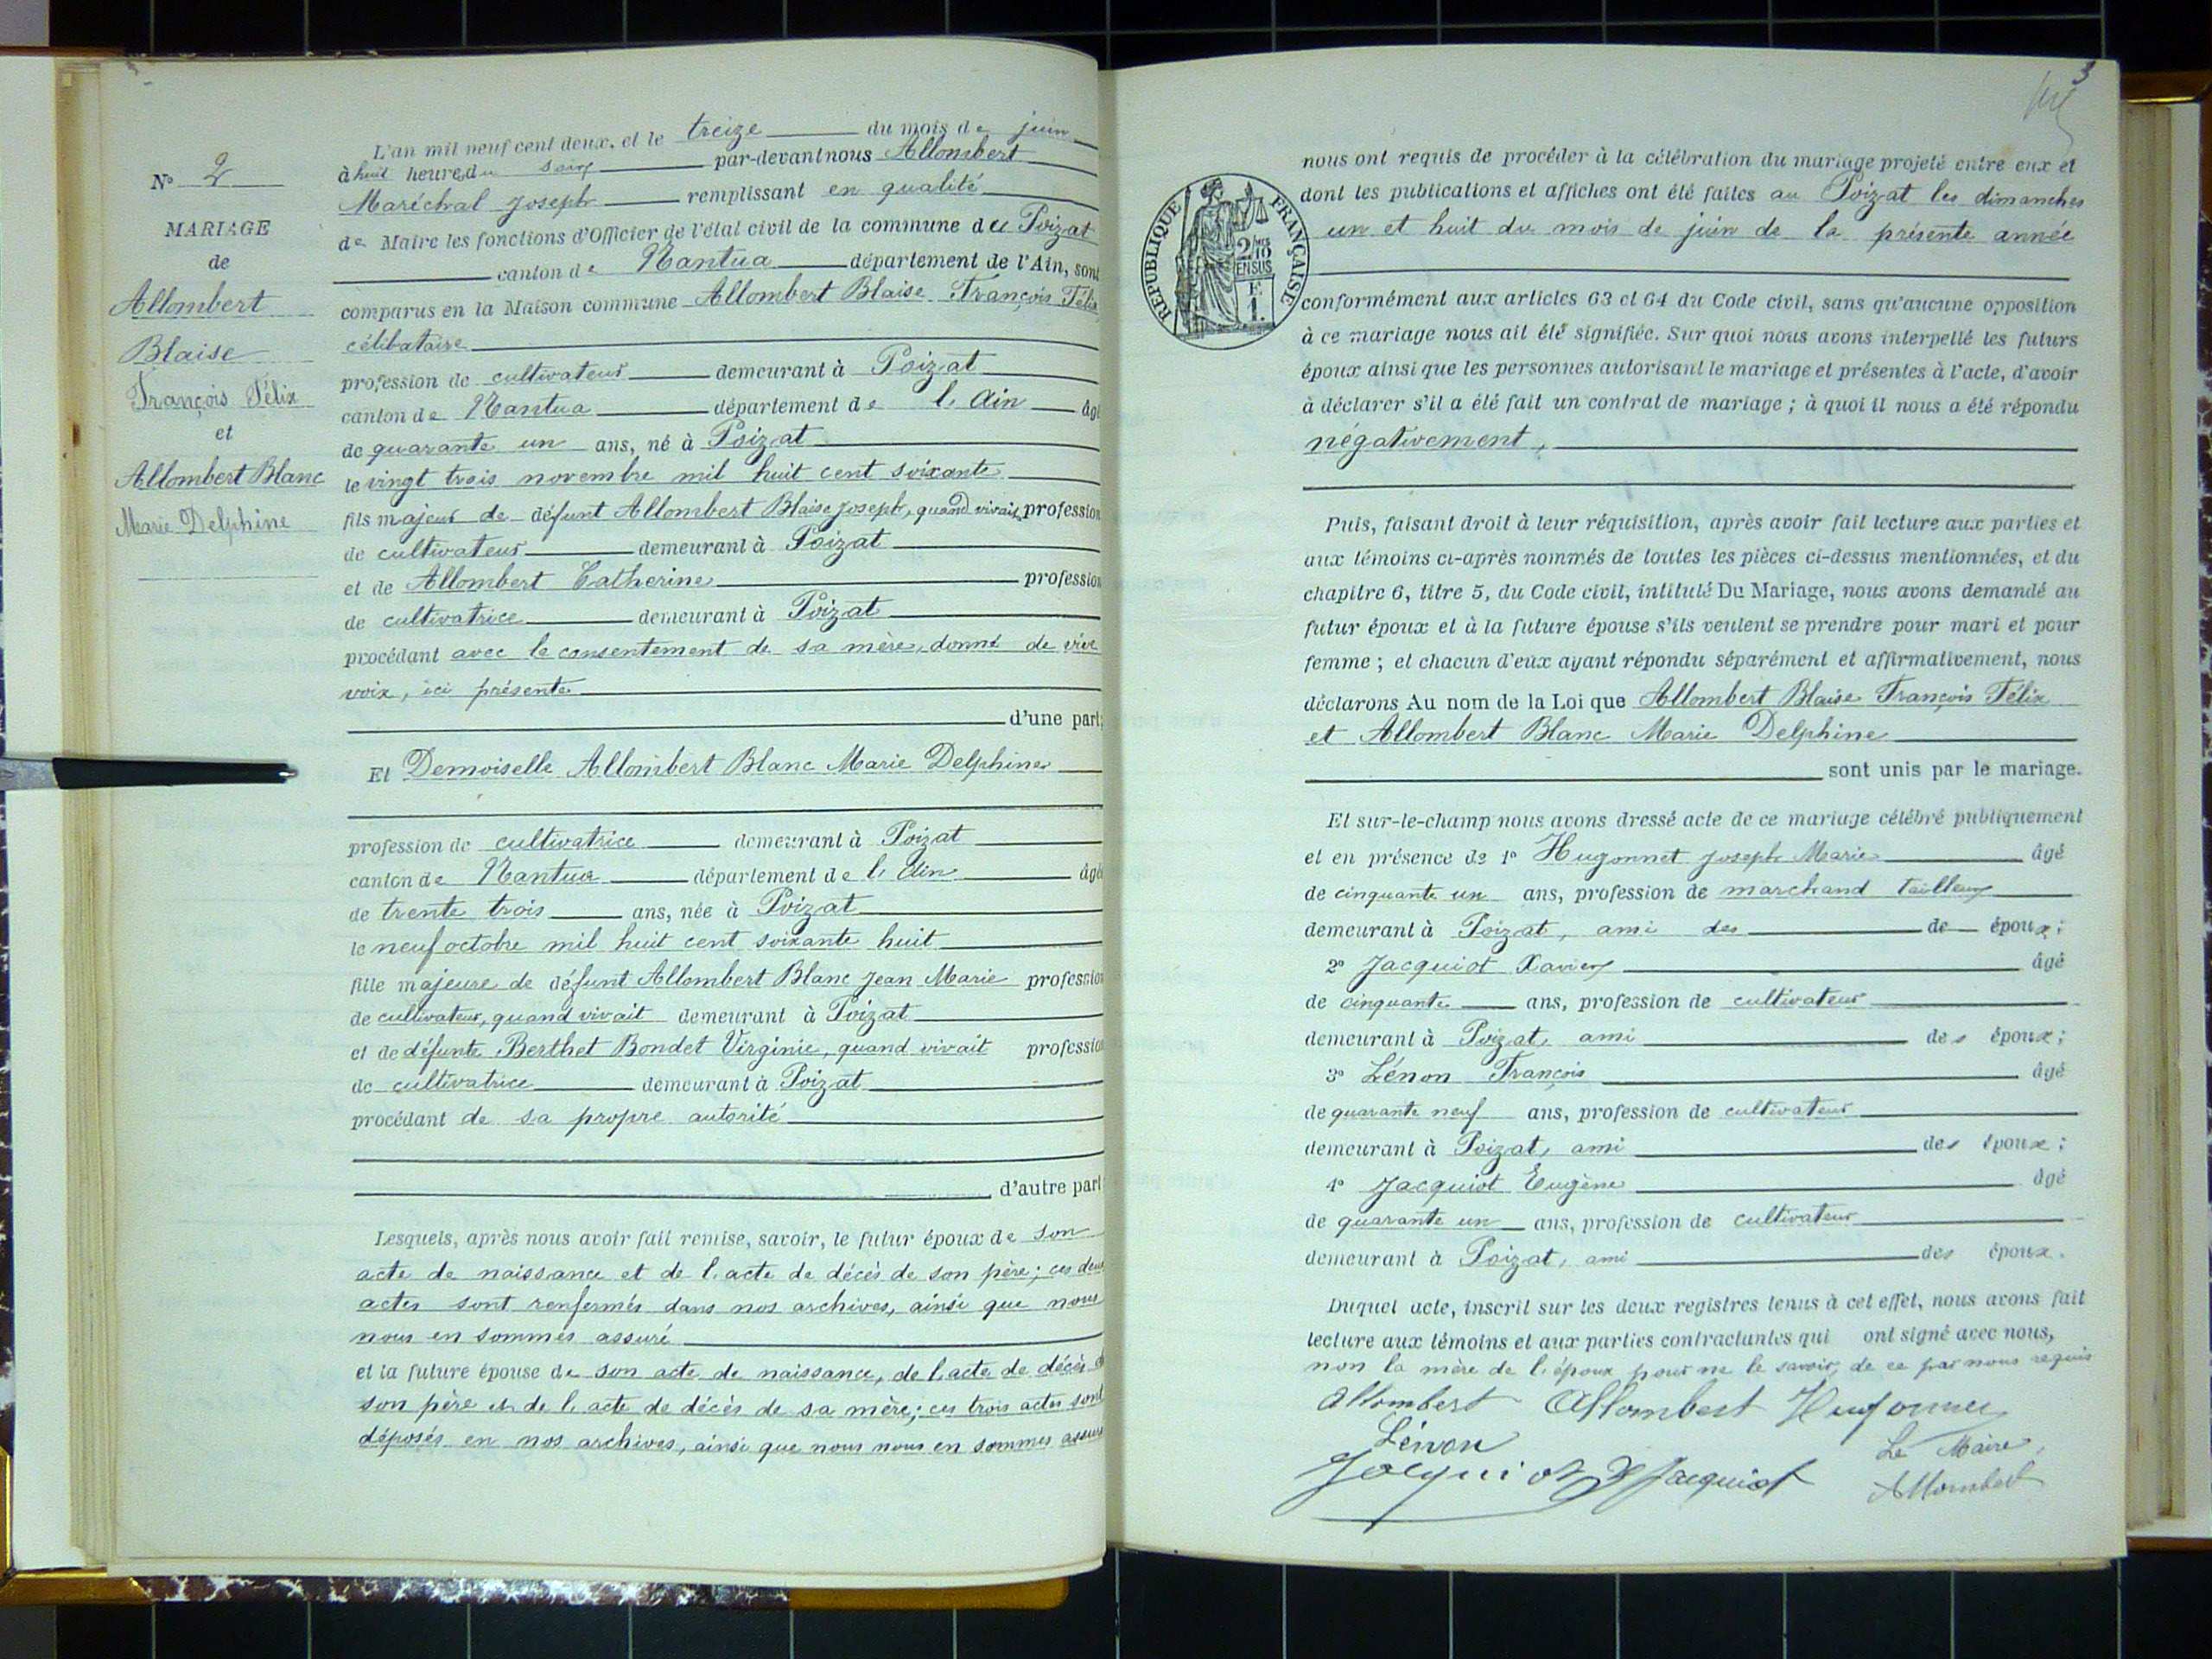 N° 2
MARIAGE
de
Allombert
Blaise
François Félix
et
Allombert Blanc
Marie Delphine
L'an mil neuf cent deux, et le treize du mois de juin
à huit heures du soir par-devant nous Allombert
Maréchal Joseph remplissant en qualité
de Maire les fonctions d'Officier de l'état civil de la commune de Poizat
canton de Nantua département de l'Ain, sont
comparus en la Maison commune Allombert Blaise François Félix
célibataire
profession de cultivateur demeurant à Poizat
canton de Nantua département de l'Ain âgé
de quarante un ans, né à Poizat
le vingt trois novembre mil huit cent soixante
fils majeur de défunt Allombert Blaise Joseph, quand vivait profession
de cultivateur demeurant à Poizat
et de Allombert Catherine profession
de cultivatrice demeurant à Poizat
procédant avec le consentement de sa mère, donné de vive
voix, ici présente
d'une part;
Et Demoiselle Allombert Blanc Marie Delphine
profession de cultivatrice demeurant à Poizat
canton de Nantua département de l'Ain âgée
de trente trois ans, née à Poizat
le neuf octobre mil huit cent soixante huit
fille majeure de défunt Allombert Blanc Jean Marie profession
de cultivateur, quand vivait demeurant à Poizat
et de défunte Berthet Bondet Virginie, quand vivait profession
de cultivatrice demeurant à Poizat
procédant de sa propre autorité
d'autre part
Lesquels, après nous avoir fait remise, savoir, le futur époux de son
acte de naissance et de l'acte de décès de son père; ces deux
actes sont renfermés dans nos archives, ainsi que nous
nous en sommes assuré
et la future épouse de son acte de naissance, de l'acte de décès de
son père et de l'acte de décès de sa mère; ces trois actes sont
déposés en nos archives, ainsi que nous nous en sommes assuré
3
RÉPUBLIQUE FRANÇAISE
2/10
EN SUS
F.
1.
nous ont requis de procéder à la célébration du mariage projeté entre eux et
dont les publications et affiches ont été faites au Poizat les dimanches
un et huit du mois de juin de la présente année
conformément aux articles 63 et 64 du Code civil, sans qu'aucune opposition
à ce mariage nous ait été signifiée. Sur quoi nous avons interpellé les futurs
époux ainsi que les personnes autorisant le mariage et présentes à l'acte, d'avoir
à déclarer s'il a été fait un contrat de mariage; à quoi il nous a été répondu
négativement,
Puis, faisant droit à leur réquisition, après avoir fait lecture aux parties et
aux témoins ci-après nommés de toutes les pièces ci-dessus mentionnées, et du
chapitre 6, titre 5, du Code civil, intitulé Du Mariage, nous avons demandé au
futur époux et à la future épouse s'ils veulent se prendre pour mari et pour
femme; et chacun d'eux ayant répondu séparément et affirmativement, nous
déclarons Au nom de la Loi que Allombert Blaise François Félix
et Allombert Blanc Marie Delphine
sont unis par le mariage.
Et sur-le-champ nous avons dressé acte de ce mariage célébré publiquement
et en présence de 1° Hugonnet Joseph Marie âgé
de cinquante un ans, profession de marchand tailleur
demeurant à Poizat, ami des de époux;
2° Jacquiot Xavier âgé
de cinquante ans, profession de cultivateur
demeurant à Poizat, ami des époux;
3° Lénon François âgé
de quarante neuf ans, profession de cultivateur
demeurant à Poizat, ami des époux;
4° Jacquiot Eugène âgé
de quarante un ans, profession de cultivateur
demeurant à Poizat, ami des époux.
Duquel acte, inscrit sur les deux registres tenus à cet effet, nous avons fait
lecture aux témoins et aux parties contractantes qui ont signé avec nous,
non la mère de l'époux pour ne le savoir, de ce par nous requis
Allombert Allombert Hugonnet
Lénon Le Maire,
Jacquiot X Jacquiot Allombert